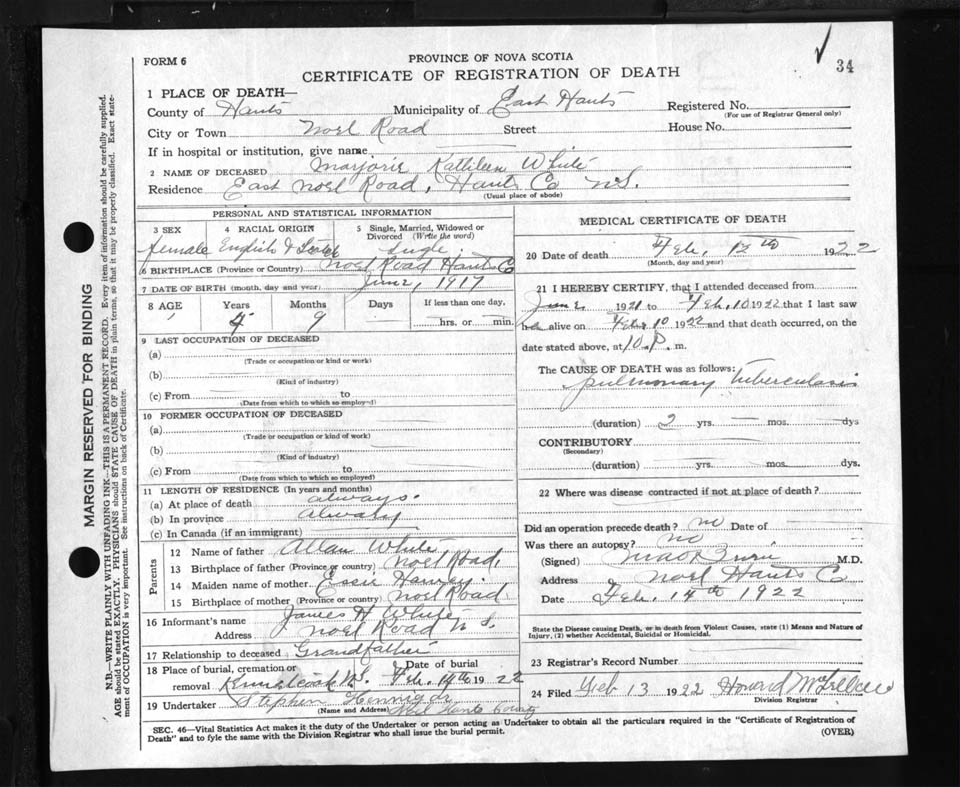 34
FORM 6
PROVINCE OF NOVA SCOTIA
CERTIFICATE OF REGISTRATION OF DEATH
1 PLACE OF DEATH—
County of Hants Municipality of East Hants Registered No.
(For use of Registrar General only)
City or Town Noel Road Street House No.
If in hospital or institution, give name
2 NAME OF DECEASED Marjorie Kathleen White
Residence East Noel Road, Hants Co N.S.
(Usual place of abode)
PERSONAL AND STATISTICAL INFORMATION
3 SEX 4 RACIAL ORIGIN 5 Single, Married, Widowed or Divorced (Write the word)
female English & Scotch Single
6 BIRTHPLACE (Province or Country) Noel Road Hants Co
7 DATE OF BIRTH (month, day and year) June, 1917
8 AGE Years Months Days If less than one day,
4 9 hrs. or min.
9 LAST OCCUPATION OF DECEASED
(a)
(Trade or occupation or kind or work)
(b)
(Kind of industry)
(c) From to
(Date from which to which so employed)
10 FORMER OCCUPATION OF DECEASED
(a)
(Trade or occupation or kind of work)
(b)
(Kind of industry)
(c) From to
(Date from which to which so employed)
11 LENGTH OF RESIDENCE (In years and months)
(a) At place of death always.
(b) In province always
(c) In Canada (if an immigrant)
Parents
12 Name of father Allan White
13 Birthplace of father (Province or country) Noel Road,
14 Maiden name of mother Essie Harvey
15 Birthplace of mother (Province or country) Noel Road
16 Informant's name James H White
Address Noel Road N S.
17 Relationship to deceased Grandfather
18 Place of burial, cremation or removal Date of burial
N.S. Feb. 14th 1922
19 Undertaker Stephen Hennigar
(Name and Address) Noel Hants County
MEDICAL CERTIFICATE OF DEATH
20 Date of death Feb, 12th 1922
(Month, day and year)
21 I HEREBY CERTIFY, that I attended deceased from
June 1921 to Feb, 10 1922 that I last saw
alive on Feb, 10 1922 and that death occurred, on the
date stated above, at 10 P. m.
The CAUSE OF DEATH was as follows:
pulmonary tuberculosis
(duration) 2 yrs. mos. dys
CONTRIBUTORY
(Secondary)
(duration) yrs. mos. dys.
22 Where was disease contracted if not at place of death?
Did an operation precede death? no Date of
Was there an autopsy? no
(Signed) M.D.
Address Noel Hants Co
Date Feb. 14th 1922
State the Disease causing Death, or in death from Violent Causes, state (1) Means and Nature of Injury, (2) whether Accidental, Suicidal or Homicidal.
23 Registrar's Record Number
24 Filed Feb 13 1922 Howard
Division Registrar
SEC. 46—Vital Statistics Act makes it the duty of the Undertaker or person acting as Undertaker to obtain all the particulars required in the "Certificate of Registration of
Death" and to fyle the same with the Division Registrar who shall issue the burial permit.
(OVER)
MARGIN RESERVED FOR BINDING
N.B.—WRITE PLAINLY WITH UNFADING INK—THIS IS A PERMANENT RECORD. Every item of information should be carefully supplied.
AGE should be stated EXACTLY. PHYSICIANS should STATE CAUSE OF DEATH in plain terms, so that it may be properly classified. Exact state-
ment of OCCUPATION is very important. See instructions on back of Certificate.